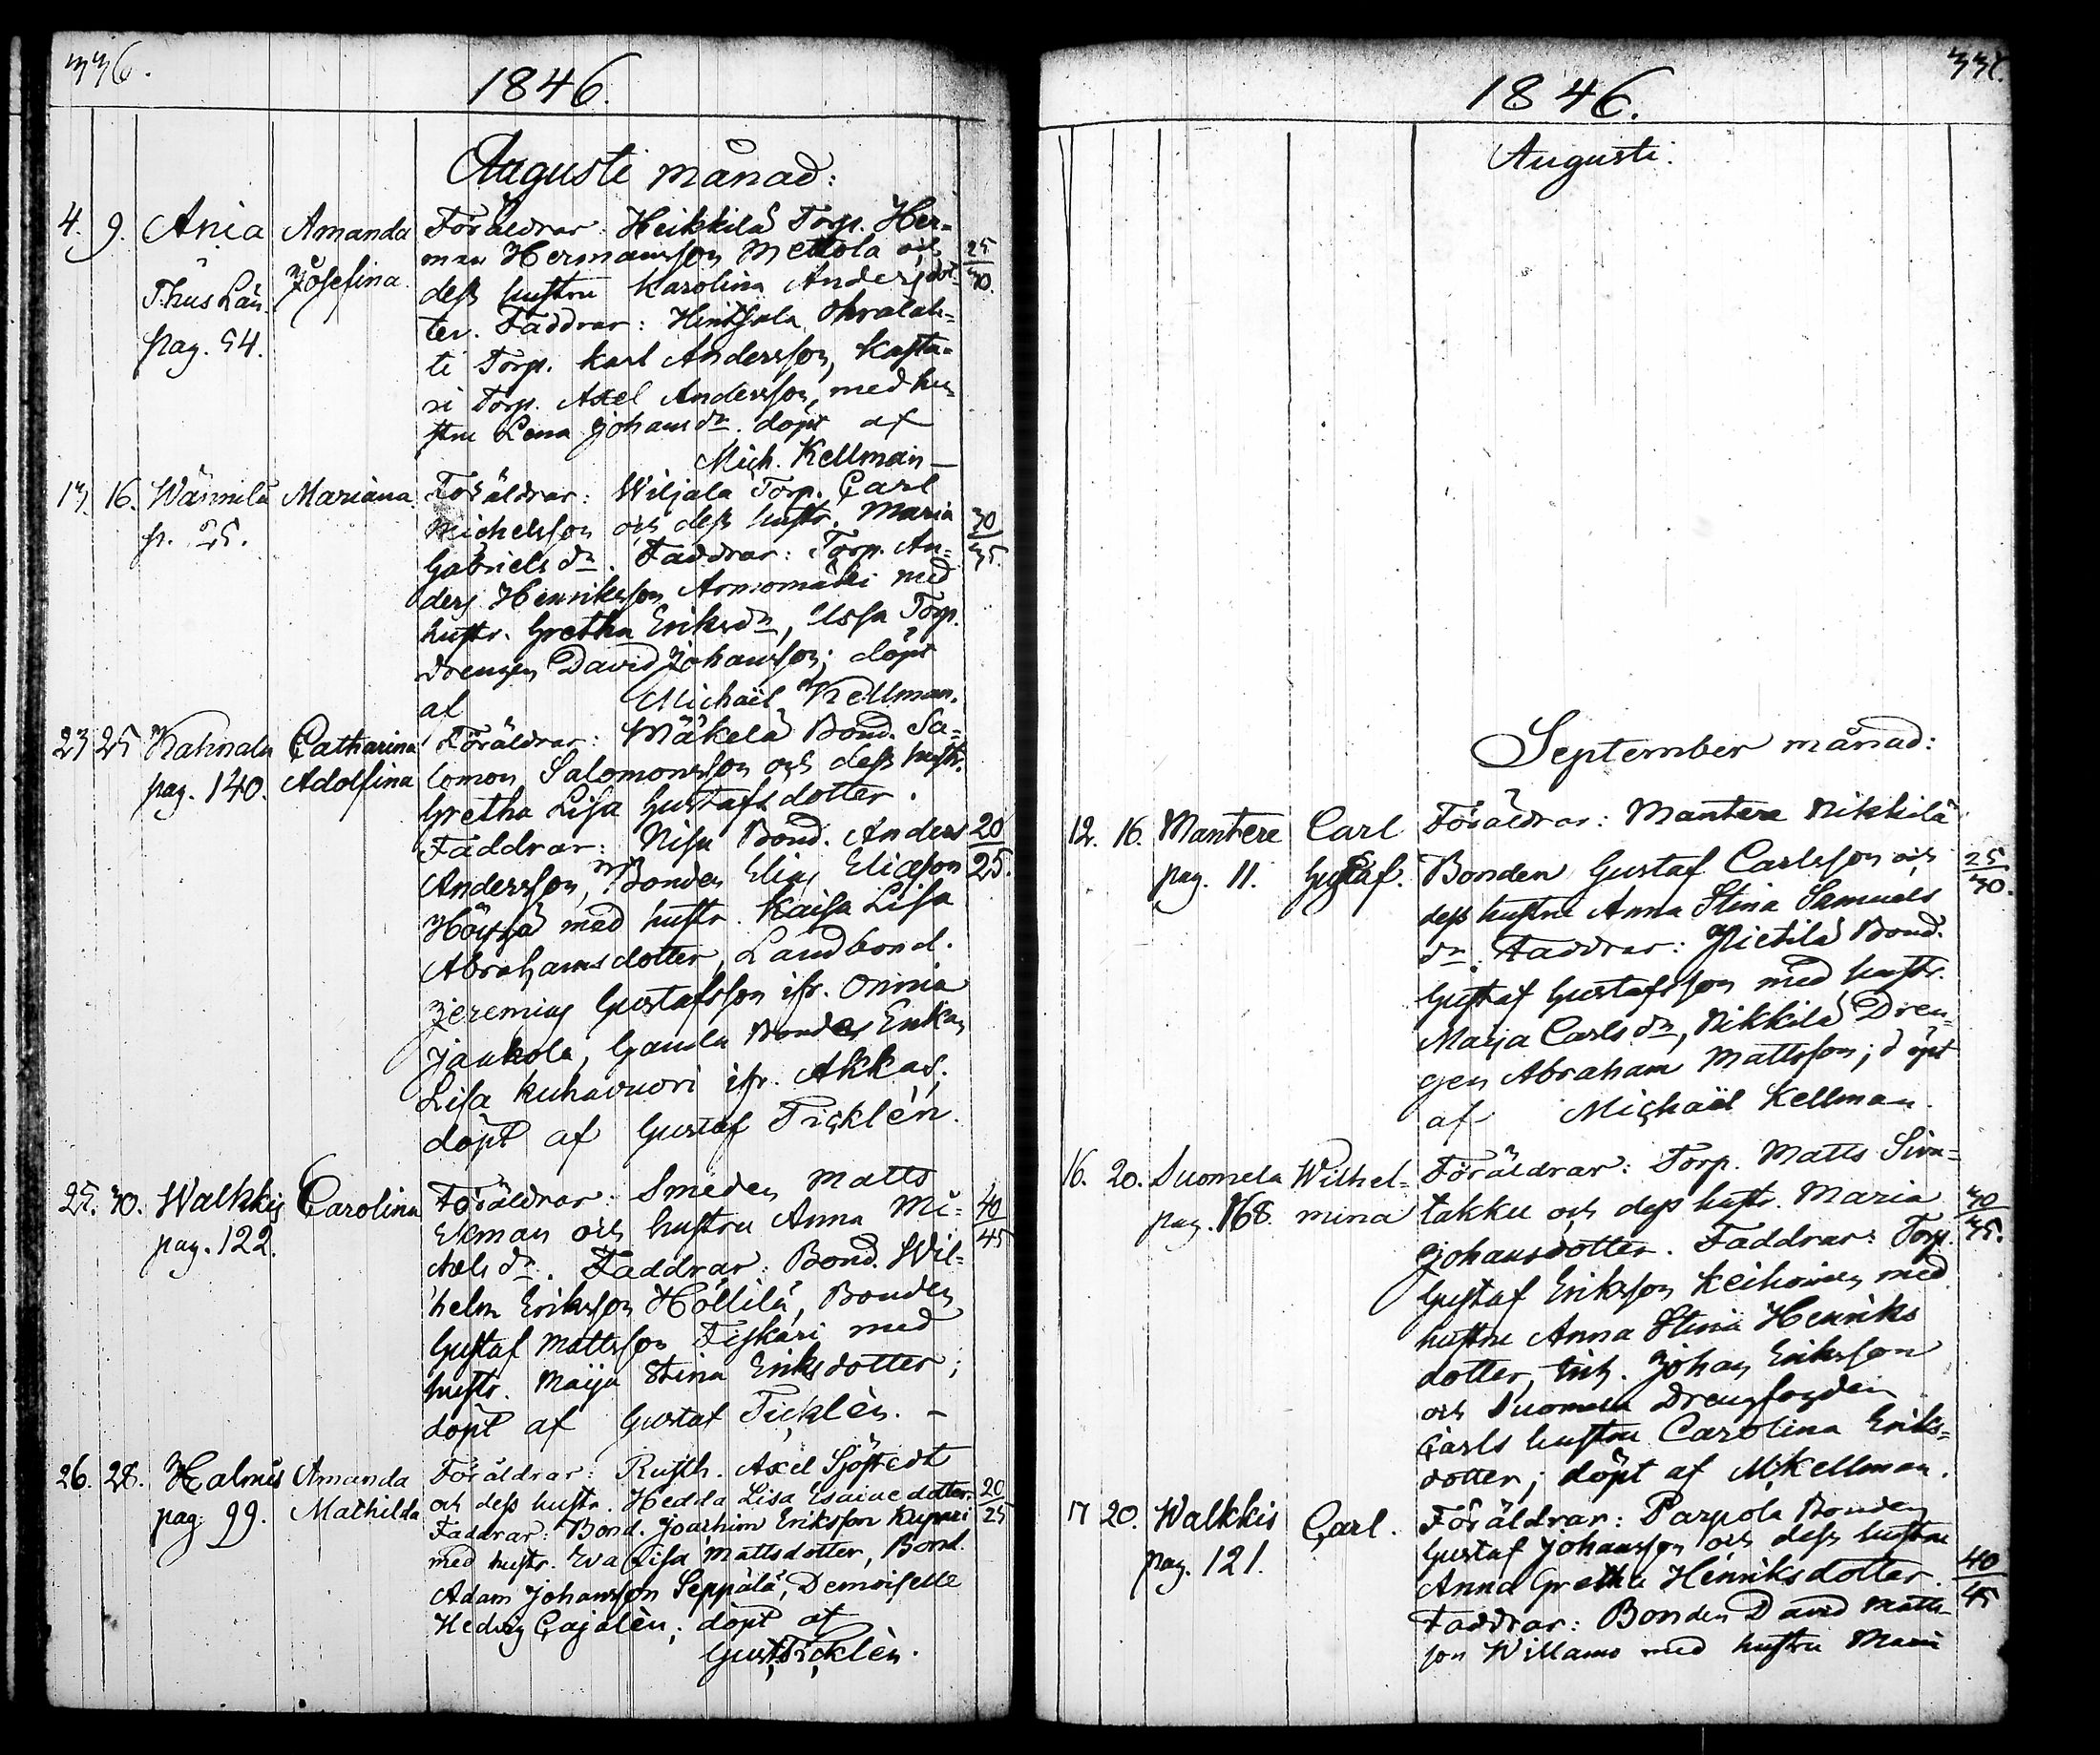 336.
1846.
Augusti månad:
4. 9. Ania Amanda Föräldrar: Heikkilä Torp. Her=
Josefina. man Hermansson Mettola och 25/30.
Thus Län dess hustru Karolina Andersdot=
pag. 54. ter. Faddrar: Hintsala
ti Torp. Karl Andersson, Kasta=
ri Torp. Axel Andersson, med hu
stru Lena Johansdr. döpt af
Mich. Kellman—
13. 16. Wännilä Mariana. Föräldrar: Wiljala Torp. Carl
p. 25. Michelsson och dess hustr. Maria 30/35.
Gabrielsdr. Faddrar: Torp. An=
ders Henriksson Aromäki med
hustr. Gretha Eriksdr, Torp.
Drengen David Johansson; döpt
af Michaël Kellman.
23 25 Kahnala Catharina Föräldrar: Mäkelä Bond. Sa=
pag. 140. Adolfina lomon Salomonsson och dess hustr.
Gretha Lisa Gustafsdotter.
Faddrar: Nisu Bond. Anders 20/25.
Andersson, Bonden Elias Eliæson
Höyssä med hustr. Kaisa Lisa
Abrahamsdotter, Landbond.
Jeremias Gustafsson ifr. Onnia
Jaakola, Gamla Bonde Enkan
Lisa Kuhavuori ifr. Akkas;
döpt af Gustaf Ticklén.
25. 30. Walkkis Carolina Föräldrar: Smeden Matts
pag. 122. Ekman och hustru Anna Mi= 40/45
chelsdr. Faddrar: Bond. Wil=
helm Eriksson Höllilä, Bonden
Gustaf Mattsson Fiskari med
hustr. Maija Stina Eriksdotter;
döpt af Gustaf Ticklén. —
26. 28. Halmis Amanda Föräldrar: Rusth. Axel Sjöstedt
pag. 99. Mathilda och dess hustr. Hedda Lisa Esaiaedotter. 20/25
Faddrar: Bond. Joachim Eriksson Kupari
med hustr. Eva Lisa Mattsdotter, Bond.
Adam Johansson Seppälä, Demoiselle
Hedvig Cajalén; döpt af
Gust. Ticklén.
337.
1846.
Augusti.
September månad:
12. 16. Mantere Carl Föräldrar: Mantere Nikkilä
pag. 11. Gustaf. Bonden Gustaf Carlsson och 25/30.
dess hustru Anna Stina Samuels
dr. Faddrar: Pietilä Bond.
Gustaf Gustafsson med hustr.
Maja Carlsdr, Nikkilä Dren=
gen Abraham Mattsson; döpt
af Michaël Kellman.
16. 20. Suomela Wilhel= Föräldrar: Torp. Matts Siru=
pag. 168. mina takku och dess hustr. Maria 30/35.
Johansdotter. Faddrar: Torp.
Gustaf Eriksson Keihoinen med
hustru Anna Stina Henriks
dotter, Inh. Johan Eriksson
och Suomela Drengfogden
Carls hustru Carolina Eriks=
dotter; döpt af M. Kellman.
17 20. Walkkis Carl. Föräldrar: Parpola Bonden
pag. 121. Gustaf Johansson och dess hustru
Anna Gretha Henriksdotter. 40/45
Faddrar: Bonden David Matts
son Willamo med hustru Maria